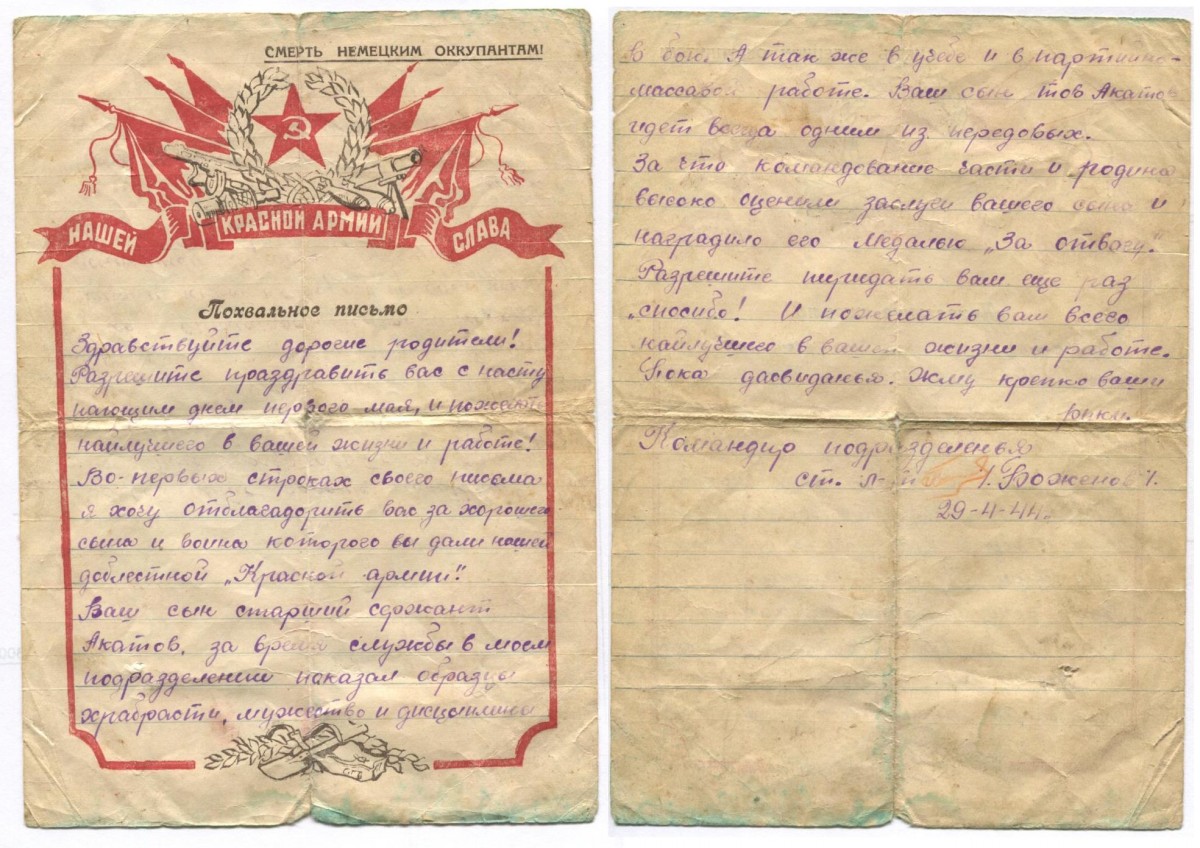 СМЕРТЬ НЕМЕЦКИМ ОККУПАНТАМ!
НАШЕЙ КРАСНОЙ АРМИИ СЛАВА
Похвальное письмо
Здравствуйте дорогие родители!
Разрешите праздравить вас с насту
пающим днем первого мая, и пожелать
найлучшего в вашей жизни и работе!
Во-первых строках своего письма
я хочу отблагадорить вас за хорошего
сына и воина которого вы дали нашей
доблестной „Красной армии".
Ваш сын старший сержант
Акатов, за время службы в моем
подразделении показал образцы
храбрасти, мужество и дисциплины
в бою. А так же в учебе и в партийно-
массавой работе. Ваш сын тов Акатов
идет всегда одним из передовых.
За что командование части и родина
высоко оценили заслуги вашего сына и
наградило его медалью „За отвагу".
Разрешите перидать вам еще раз
„спосибо! И пожелать вам всего
найлучшего в вашей жизни и работе.
Пока дасвиданья. Жму крепко ваши
руки.
Командир подразделенья
ст. л-т /Боженов/.
29-4-44г.